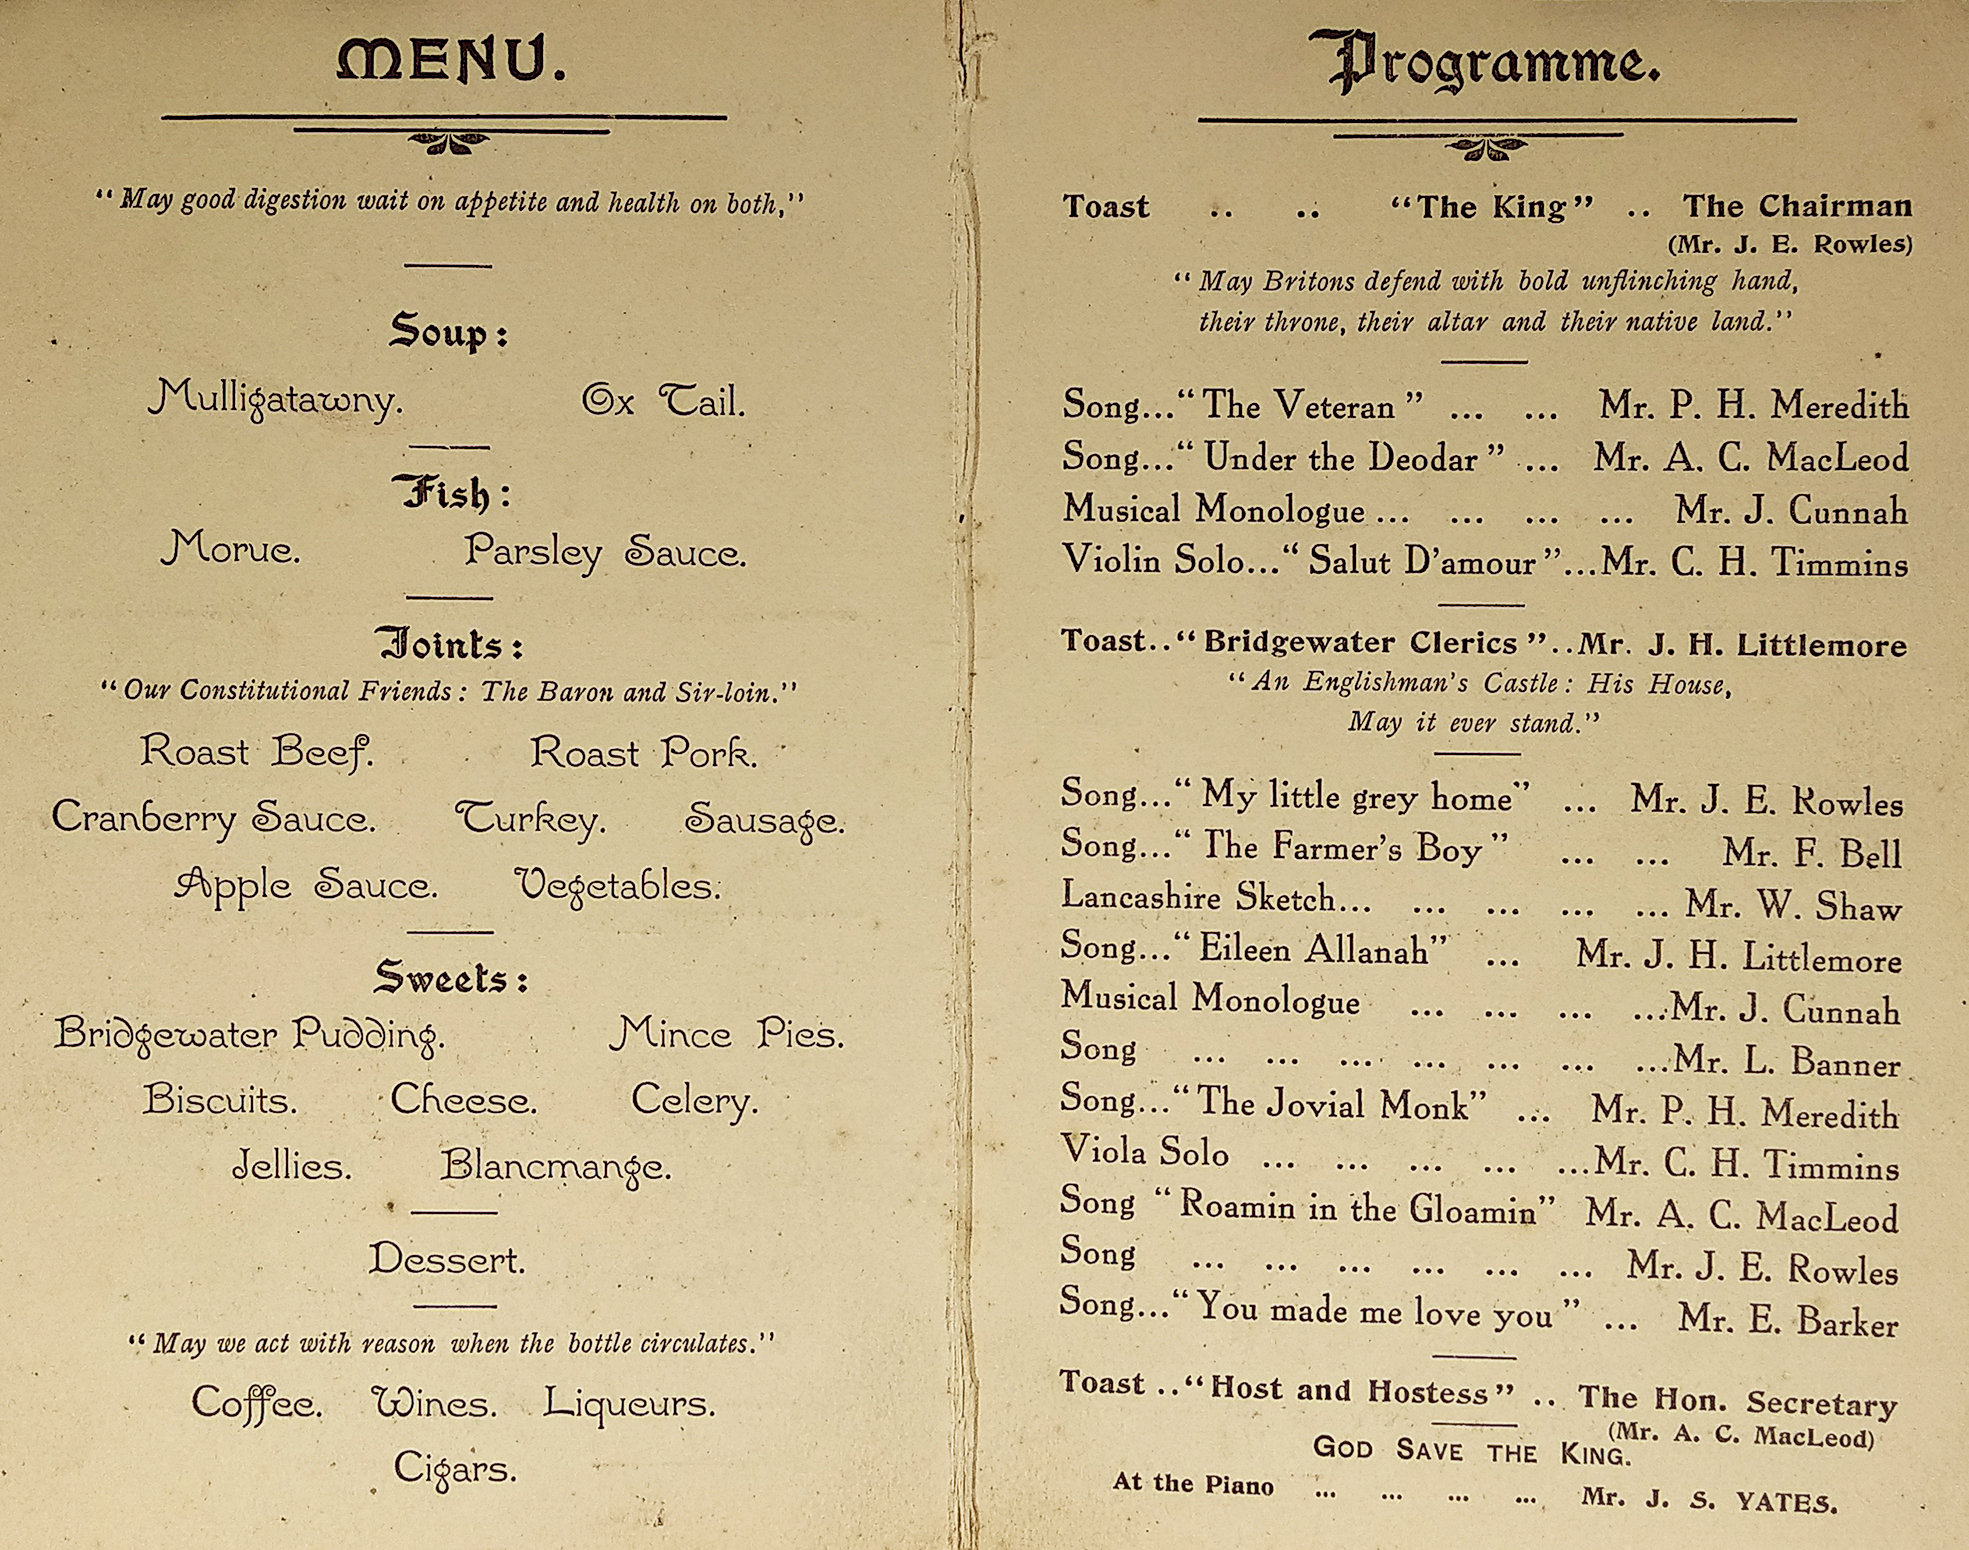 MENU.
"May good digestion wait on appetite and health on both,"
Soup:
Mulligatawny. Ox Tail.
Fish:
Morue. Parsley Sauce.
Joints:
"Our Constitutional Friends: The Baron and Sir-loin."
Roast Beef. Roast Pork.
Cranberry Sauce. Turkey. Sausage.
Apple Sauce. Vegetables.
Sweets:
Bridgewater Pudding. Mince Pies.
Biscuits. Cheese. Celery.
Jellies. Blancmange.
Dessert.
"May we act with reason when the bottle circulates."
Coffee. Wines. Liqueurs.
Cigars.
Programme.
Toast .. .. "The King" .. The Chairman
(Mr. J. E. Rowles)
"May Britons defend with bold unflinching hand,
their throne, their altar and their native land."
Song..."The Veteran" ... ... Mr. P. H. Meredith
Song..."Under the Deodar" ... Mr. A. C. MacLeod
Musical Monologue ... ... ... ... Mr. J. Cunnah
Violin Solo..."Salut D'amour"...Mr. C. H. Timmins
Toast.."Bridgewater Clerics"..Mr. J. H. Littlemore
"An Englishman's Castle: His House,
May it ever stand."
Song..."My little grey home" ... Mr. J. E. Rowles
Song..."The Farmer's Boy" ... ... Mr. F. Bell
Lancashire Sketch... ... ... ... ... Mr. W. Shaw
Song..."Eileen Allanah" ... Mr. J. H. Littlemore
Musical Monologue ... ... ... ...Mr. J. Cunnah
Song ... ... ... ... ... ... ...Mr. L. Banner
Song..."The Jovial Monk" ... Mr. P. H. Meredith
Viola Solo ... ... ... ... ...Mr. C. H. Timmins
Song "Roamin in the Gloamin" Mr. A. C. MacLeod
Song ... ... ... ... ... ... Mr. J. E. Rowles
Song..."You made me love you" ... Mr. E. Barker
Toast .."Host and Hostess" .. The Hon. Secretary
(Mr. A. C. MacLeod)
GOD SAVE THE KING.
At the Piano ... ... ... ... Mr. J. S. YATES.